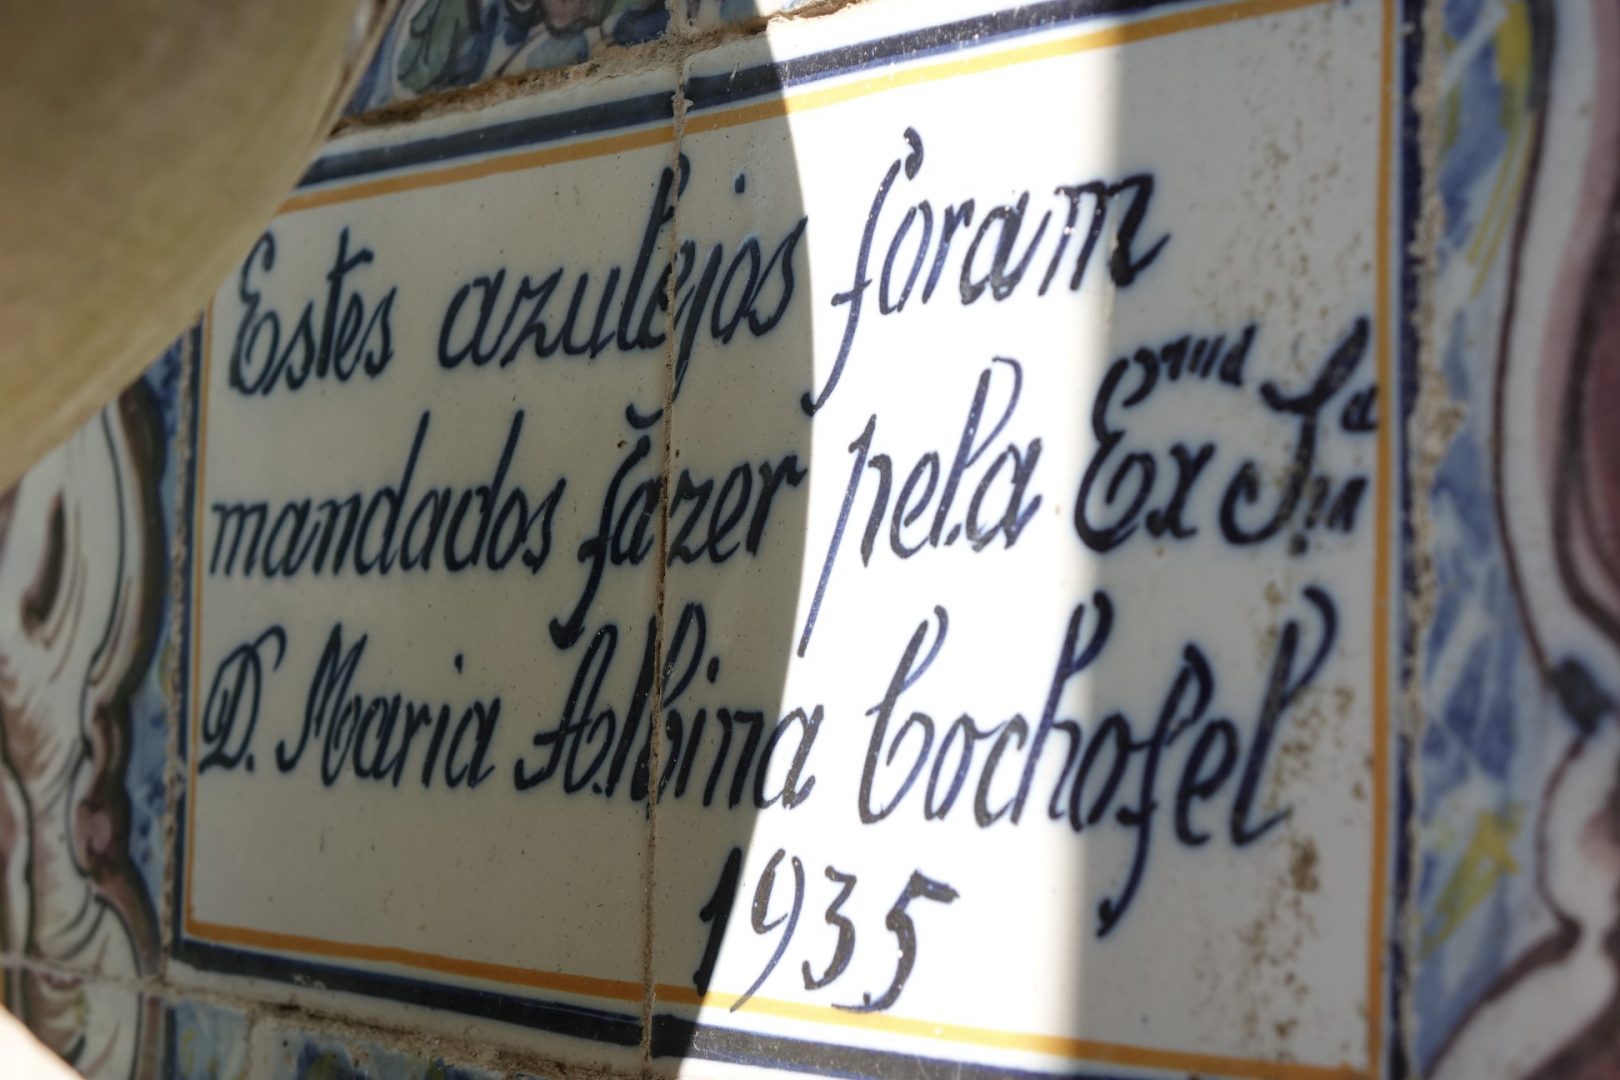 Estes azulejos foram
mandados fazer pela Exma Sra
D. Maria Albina Cochofel
1935